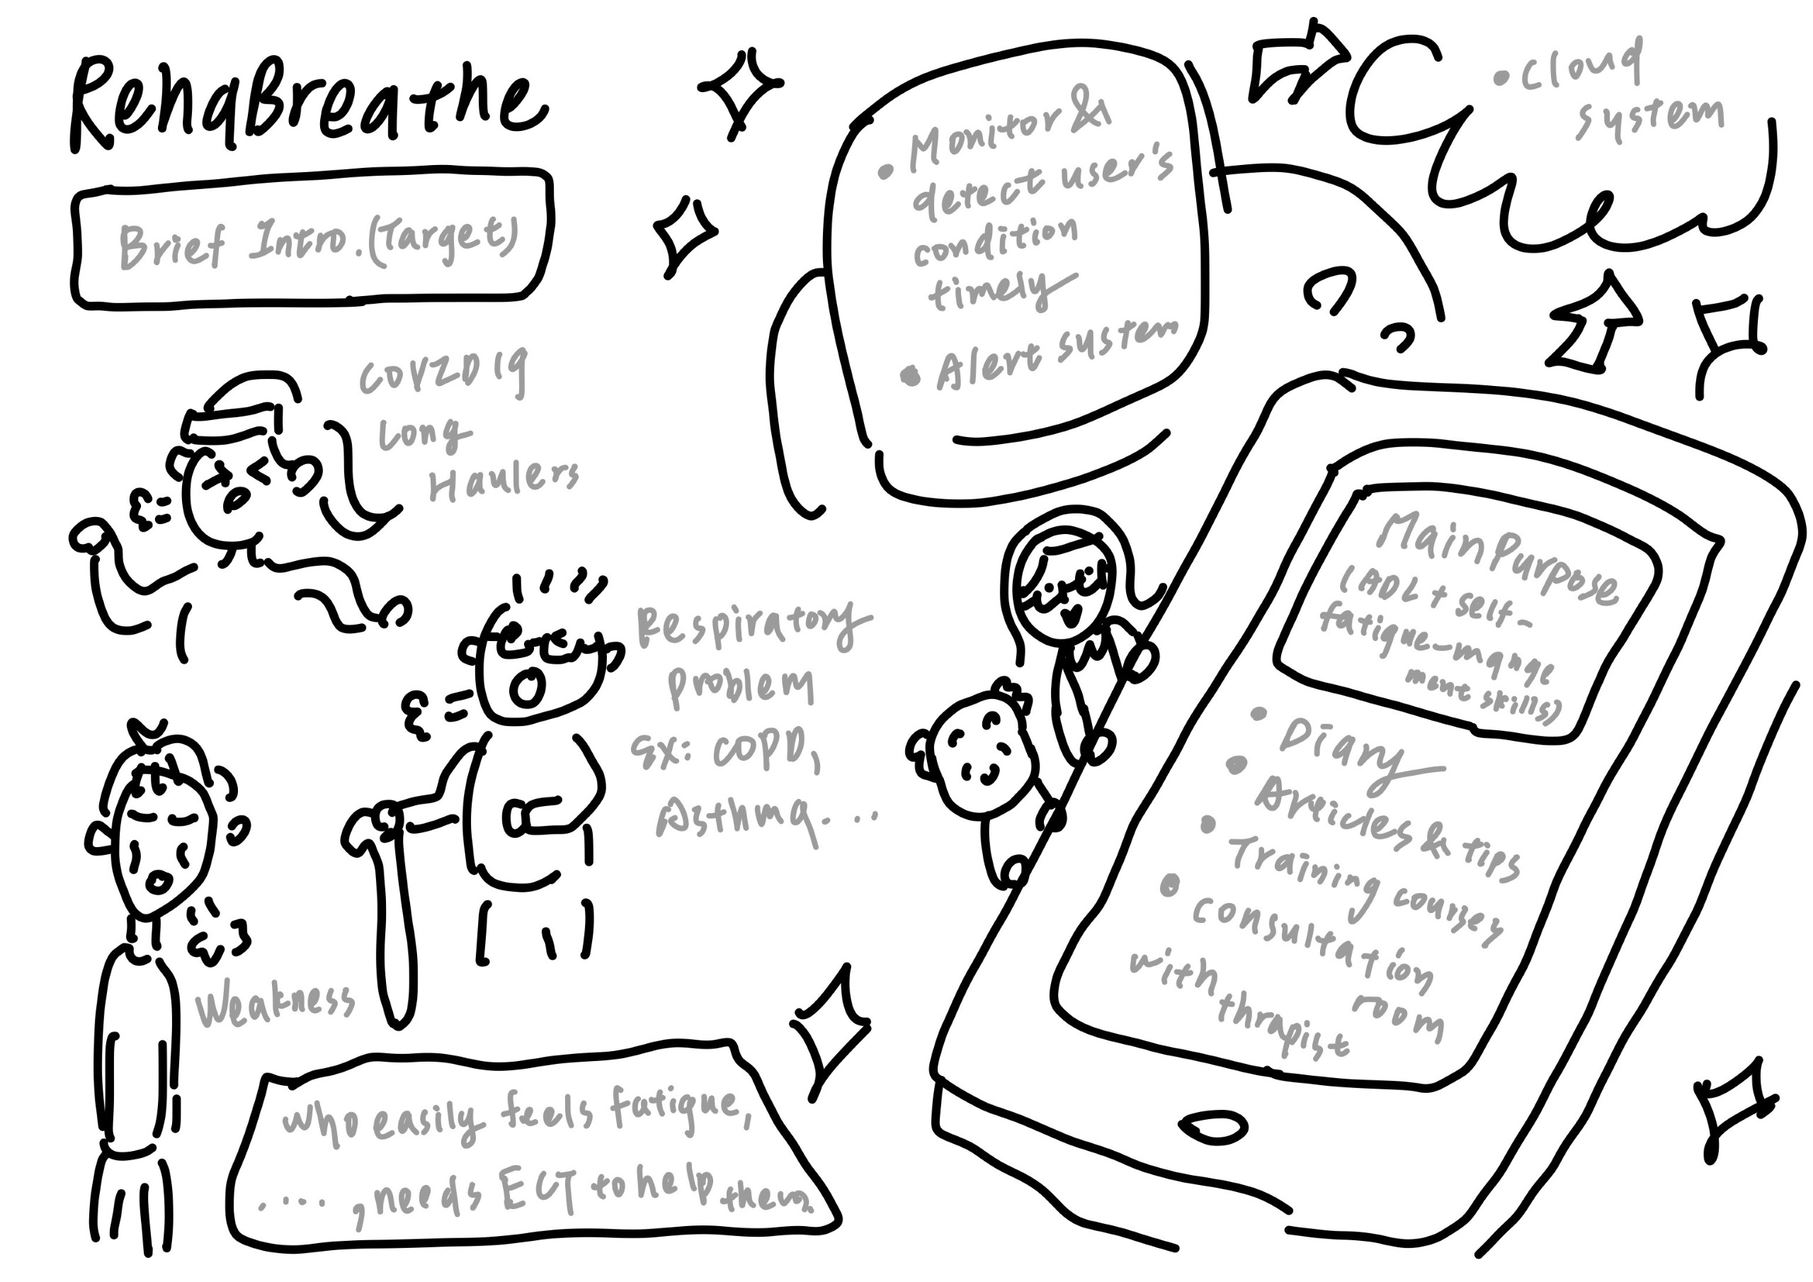 RehaBreathe
Brief Intro.(Target)
COVID19
Long
Haulers
Respiratory
Problem
Ex: COPD,
Asthma...
Weakness
who easily feels fatigue,
...., needs ECT to help them.
• Monitor &
detect user's
condition
timely
• Alert system
• Cloud
system
Main Purpose
(ADL + self-
fatigue-manage
ment skills)
• Diary
• Articles & tips
• Training courses
• Consultation
room
with
thrapist